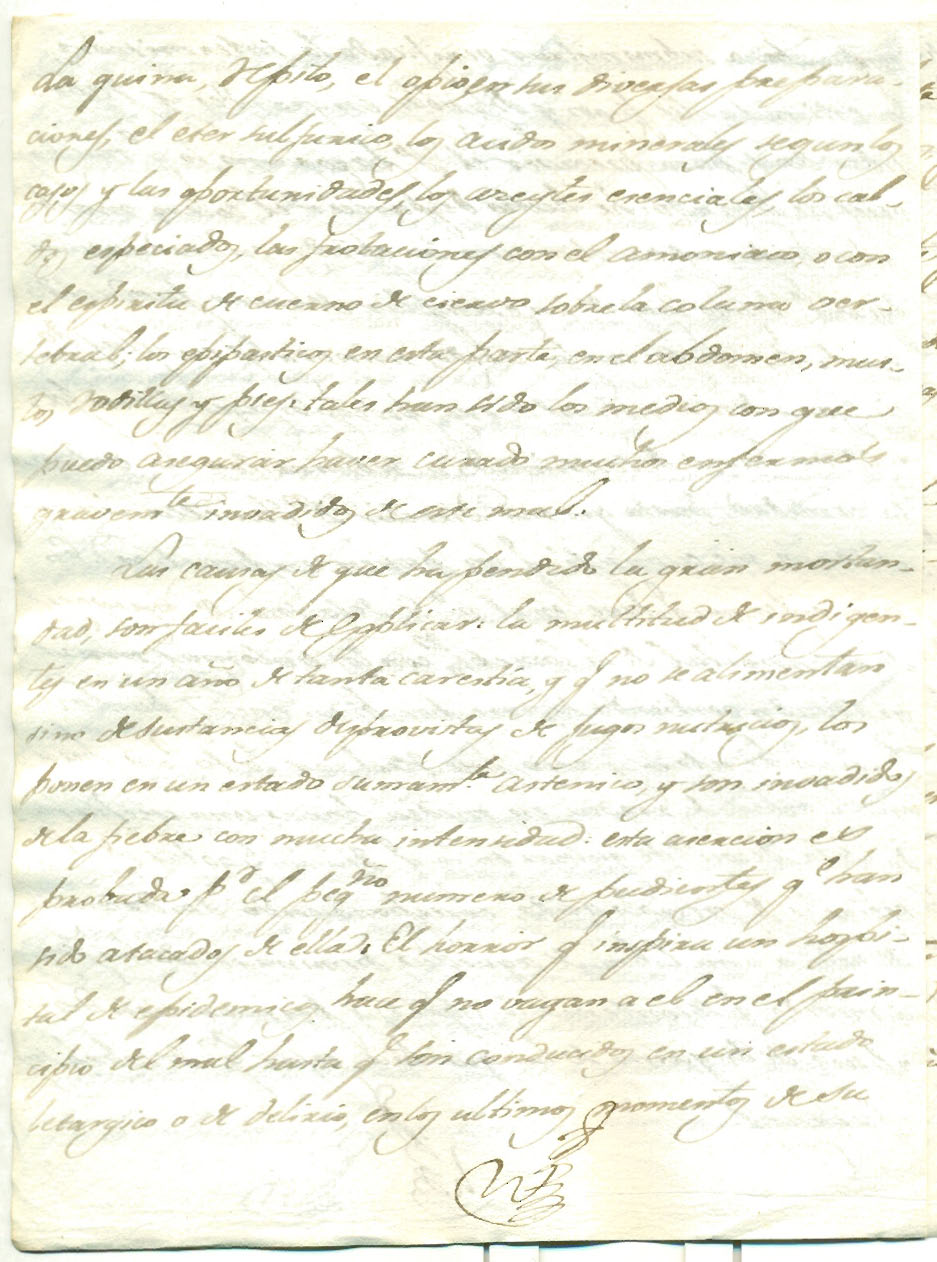 La quina, repito, el opio en sus diversas prepara-
ciones, el eter sulfurico, los acidos minerales segun los
casos y las oportunidades, los azeytes esenciales, los cal-
dos especiados, las frotaciones con el amoniaco, o con
el espiritu de cuerno de ciervo sobre la coluna ver-
tebral; los epispasticos en esta parte, en el abdomen, mus-
los rodillas y pies; tales han sido los medios con que
puedo asegurar haver curado muchos enfermos
gravemte. invadidos de este mal.
Las causas de que ha pendido la gran mortan-
dad, son faciles de esplicar: la multitud de indigen-
tes en un año de tanta carestia, y q no se alimentan
sino de sustancias desprovistas de jugos nutricios, los
ponen en un estado sumamte. astenico, y son invadidos
de la fiebre con mucha intensidad: esta asercion es
probada pr el peqño numero de pudientes qe han
sido atacados de ella. El horror q inspira un hospi-
tal de epidemicos hace q no vayan a el en el prin-
cipio del mal hasta q son conducidos en un estado
letargico o de delirio, en los ultimos momentos de su